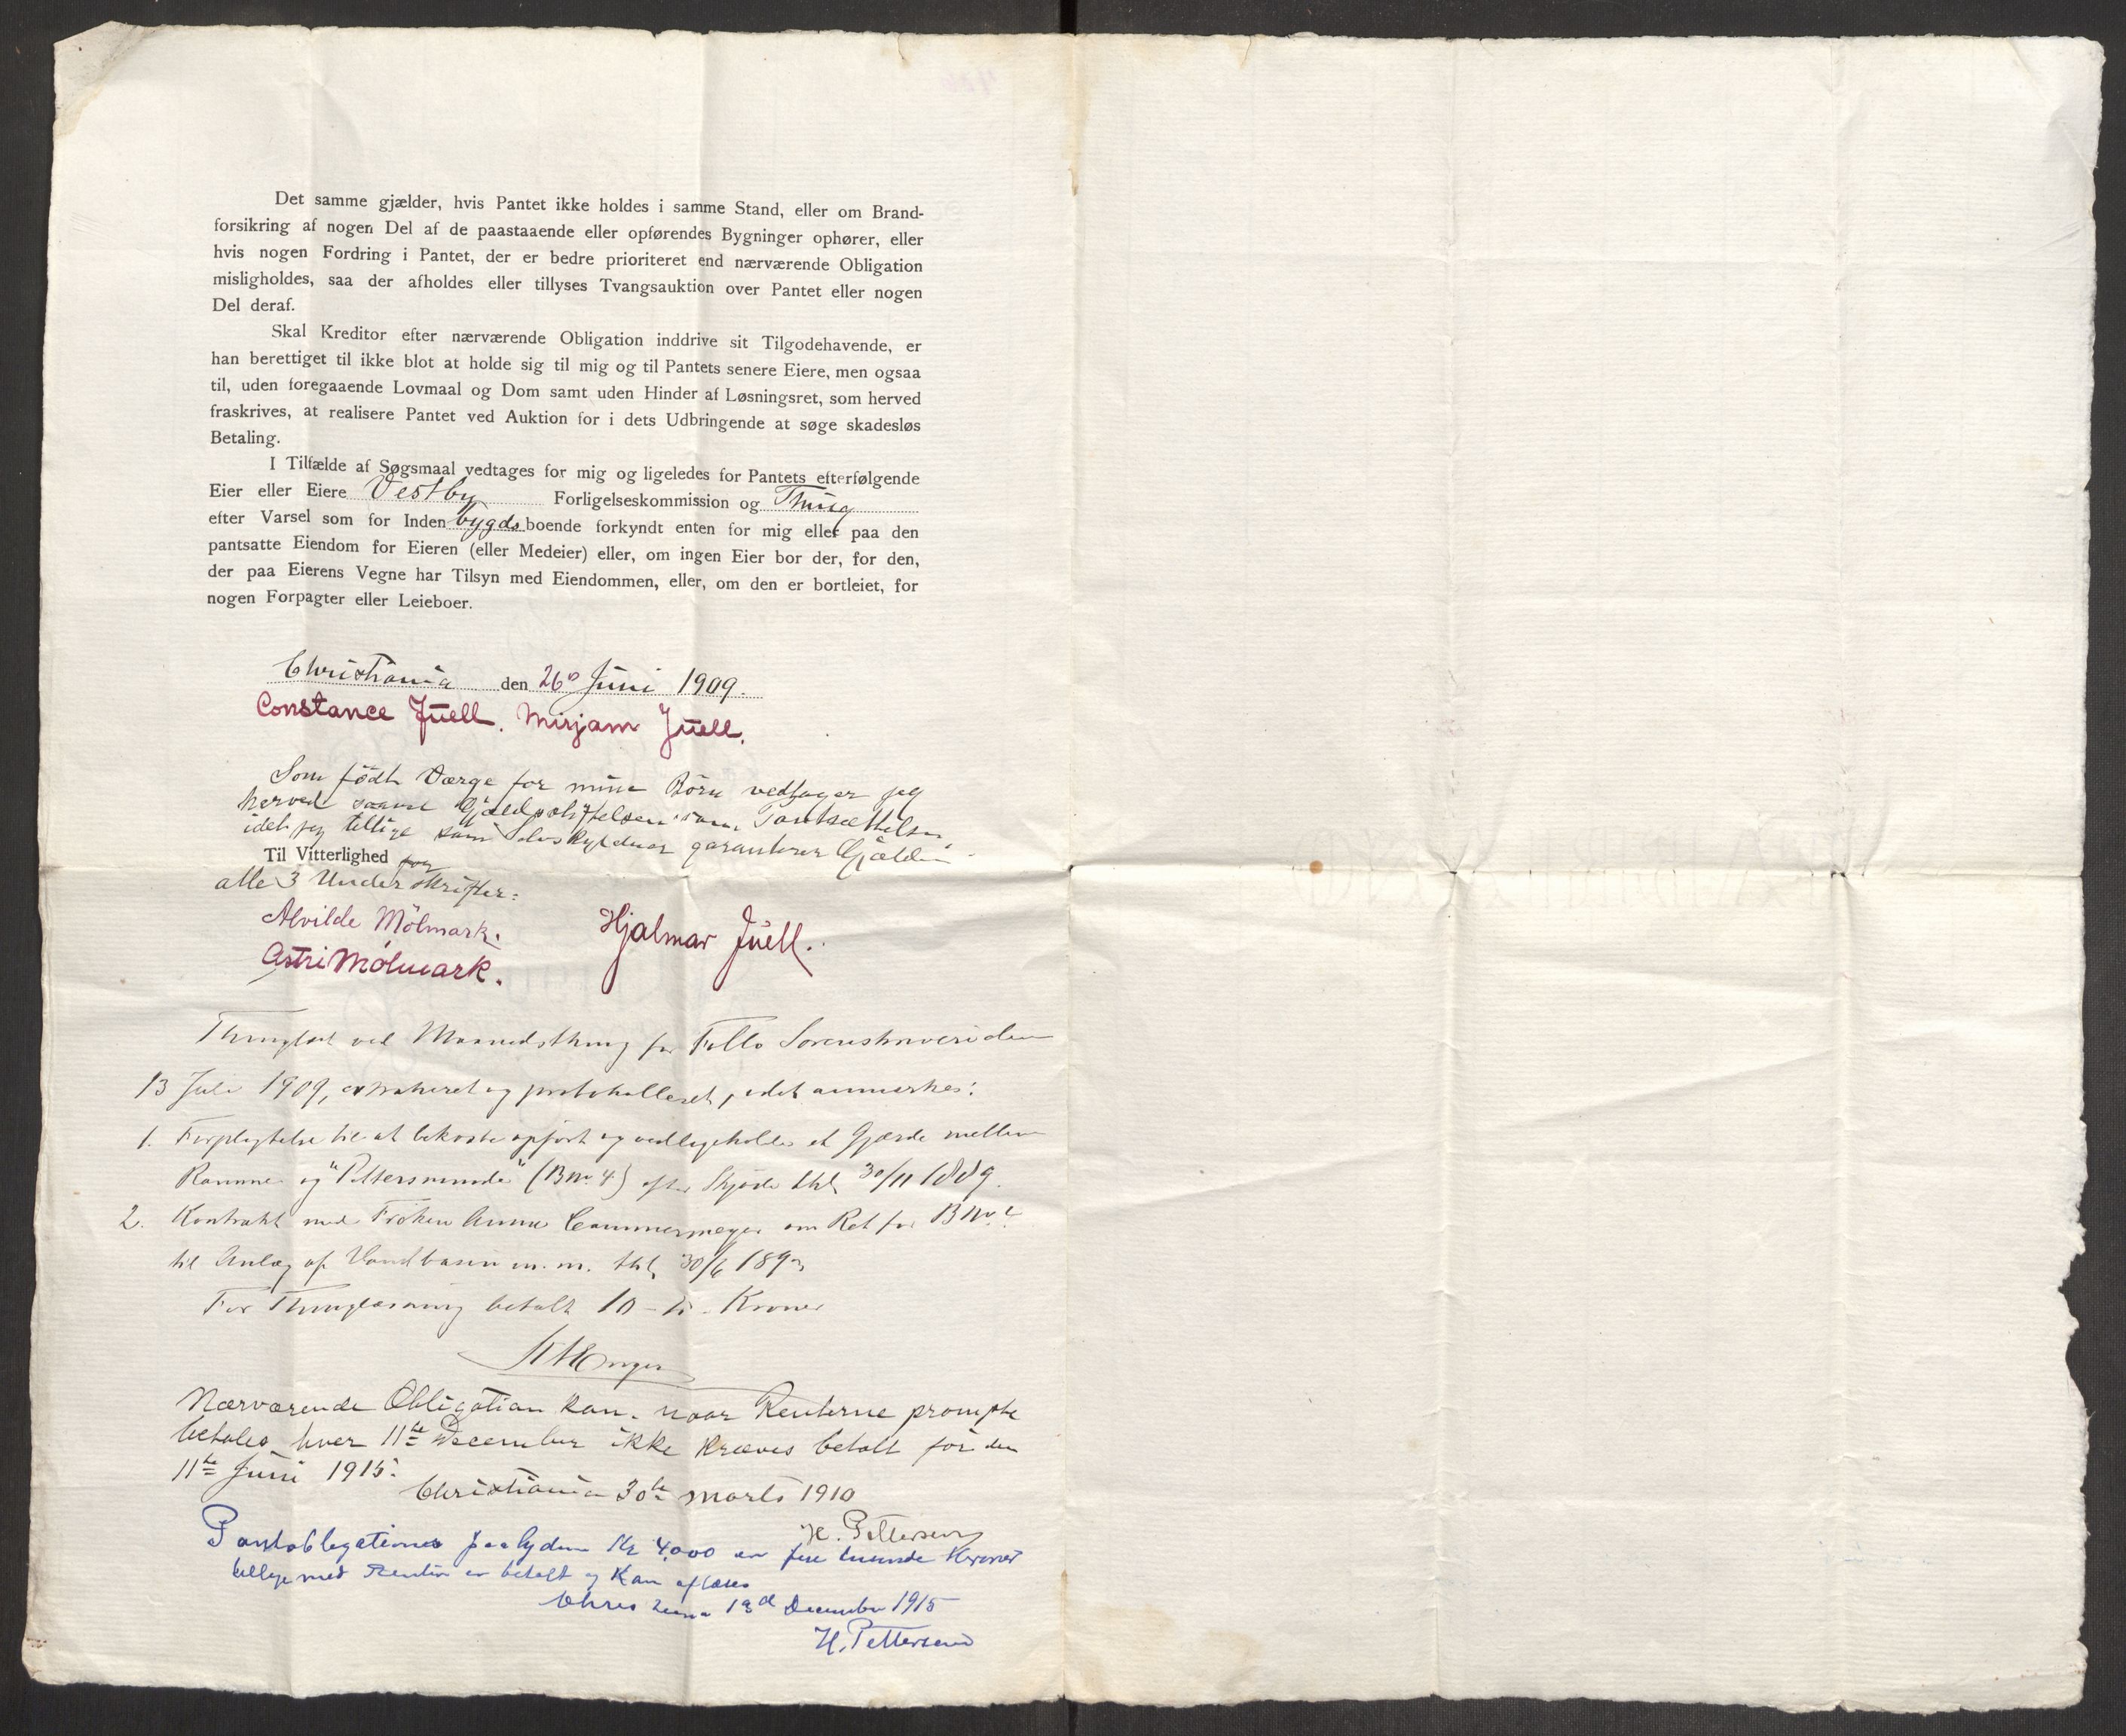 Det samme gjælder, hvis Pantet ikke holdes i samme Stand, eller om Brand-
forsikring af nogen Del af de paastaaende eller opførendes Bygninger ophører, eller
hvis nogen Fordring i Pantet, der er bedre prioriteret end nærværende Obligation
misligholdes, saa der afholdes eller tillyses Tvangsauktion over Pantet eller nogen
Del deraf.
Skal Kreditor efter nærværende Obligation inddrive sit Tilgodehavende, er
han berettiget til ikke blot at holde sig til mig og til Pantets senere Eiere, men ogsaa
til, uden foregaaende Lovmaal og Dom samt uden Hinder af Løsningsret, som herved
fraskrives, at realisere Pantet ved Auktion for i dets Udbringende at søge skadesløs
Betaling.
I Tilfælde af Søgsmaal vedtages for mig og ligeledes for Pantets efterfølgende
Eier eller Eiere Vestby Forligelseskommission og Thing
efter Varsel som for Inden bygds boende forkyndt enten for mig eller paa den
pantsatte Eiendom for Eieren (eller Medeier) eller, om ingen Eier bor der, for den,
der paa Eierens Vegne har Tilsyn med Eiendommen, eller, om den er bortleiet, for
nogen Forpagter eller Leieboer.
Christiania den 26de Juni 1909.
Constance Juell. Mirjam Juell.
Som født Værge for mine Børn vedtager jeg
herved saavel Gjældsstiftelsen som Pantsættelsen
idet jeg tillige som Selvskyldner garanterer Gjælden
Til Vitterlighed for
alle 3 Underskrifter:
Alvilde Mölmark.
Hjalmar Juell.
Astri Mölmark.
Thinglæst ved Maanedsthing for Follo Sorenskriveri den
13 Juli 1909, extraheret og protokolleret, idet anmærkes:
1. Forpligtelse til at bekoste opført og vedligeholde et Gjærde mellem
Ramme og "Pettersminde" (Bno 4) efter Skjøde thl. 30/11 1889.
2. Kontrakt med Frøken Anna Cammermeyer om Ret for Bno
til Anlæg af Vandbasin m. m. thl. 30/6
For Thinglæsning betalt 10 - ti - Kroner
Nærværende Obligation kan, naar Renterne prompte
betales hver 11te December ikke kræves betalt før den
11te Juni 1915.
Christiania 30te Marts 1910
H. Pettersen
Pantobligationen paalydende Kr 4,000 er fire tusinde Kroner
tillige med Renter er betalt og kan aflæses
Christiania 13d December 1915
H. Pettersen